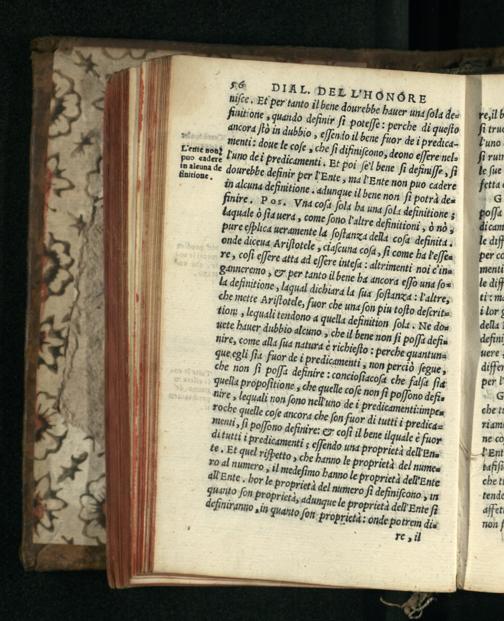 56 DIAL. DELL'HONORE
nisce. Et per tanto il bene dourebbe hauer una sola de=
finitione, quando definir si potesse: perche di questo
ancora stò in dubbio, essendo il bene fuor de i predica-
menti: doue le cose, che si difiniscono, deono essere nel-
l'uno de i predicamenti. Et poi se'l bene si definisse, si
dourebbe definir per l'Ente, ma l'Ente non può cadere
in alcuna definitione. adunque il bene non si potrà de=
finire. Pos. Vna cosa sola ha una sola definitione;
laquale ò sia uera, come sono l'altre definitioni, ò nò,
pure esplica ueramente la sostanza della cosa definita.
onde diceua Aristotele, ciascuna cosa, si come ha l'esse=
re, cosi essere atta ad essere intesa: altrimenti noi c'in=
ganneremo, & per tanto il bene ha ancora esso una so=
la definitione, laqual dichiara la sua sostanza: l'altre,
che mette Aristotele, fuor che una son piu tosto descrit=
tioni, lequali tendono a quella definition sola. Ne do=
uete hauer dubbio alcuno, che il bene non si possa defi=
nire, come alla sua natura è richiesto: perche quantun=
que egli sia fuor de i predicamenti, non perciò segue,
che non si possa definire: conciosiacosa che falsa sia
quella propositione, che quelle cose non si possono defi=
nire, lequali non sono nell'uno de i predicamenti: impe=
roche quelle cose ancora che son fuor di tutti i predica=
menti, si possono definire: & cosi il bene ilquale è fuor
di tutti i predicamenti; essendo una proprietà dell'En=
te. Et quel rispetto, che hanno le proprietà del nume=
ro al numero, il medesimo hanno le proprietà dell'Ente
all'Ente. hor le proprietà del numero si definiscono, in
quanto son proprietà, adunque le proprietà dell'Ente si
definiranno, in quanto son proprietà: onde potrem di=
re, il
L'ente non
puo cadere
in alcuna de
finitione.